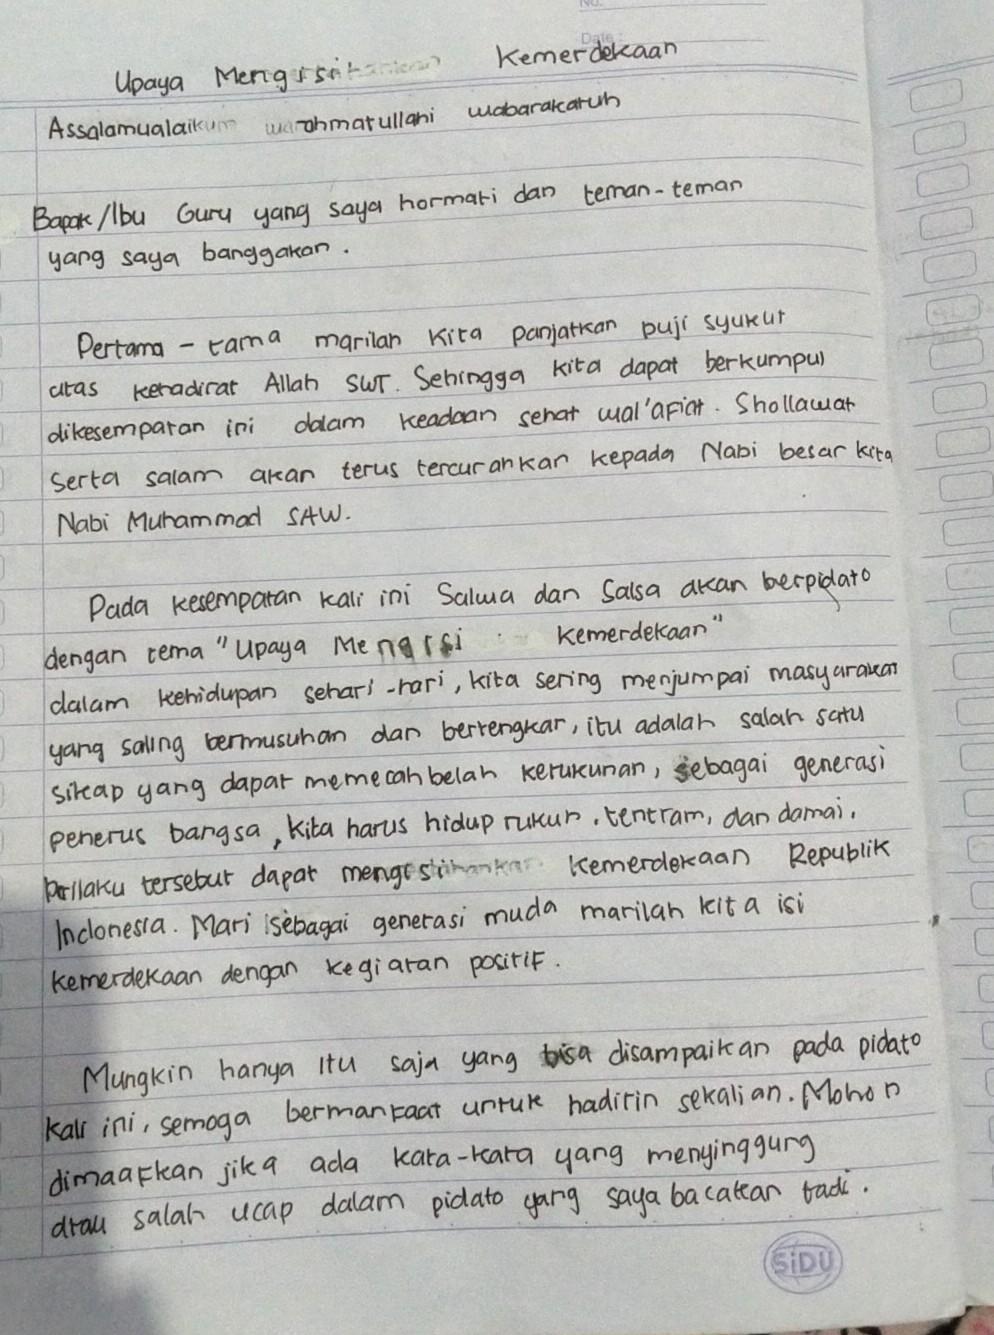 No.
Date:
Upaya Mengisi Kemerdekaan
Assalamualaikum warahmatullahi wabarakatuh
Bapak/Ibu Guru yang saya hormati dan teman-teman
yang saya banggakan.
Pertama-tama marilah kita panjatkan puji syukur
atas kehadirat Allah SWT. Sehingga kita dapat berkumpul
dikesempatan ini dalam keadaan sehat wal'afiat. Shollawat
serta salam akan terus tercurahkan kepada Nabi besar kita
Nabi Muhammad SAW.
Pada kesempatan kali ini Salwa dan Salsa akan berpidato
dengan tema "Upaya Mengisi Kemerdekaan"
dalam kehidupan sehari-hari, kita sering menjumpai masyarakat
yang saling bermusuhan dan bertengkar, itu adalah salah satu
sikap yang dapat memecah belah kerukunan, sebagai generasi
penerus bangsa, kita harus hidup rukun, tentram, dan damai.
Prilaku tersebut dapat mengisi Kemerdekaan Republik
Indonesia. Mari sebagai generasi muda marilah kita isi
kemerdekaan dengan kegiatan positif.
Mungkin hanya itu saja yang bisa disampaikan pada pidato
kali ini, semoga bermanfaat untuk hadirin sekalian. Mohon
dimaafkan jika ada kata-kata yang menyinggung
atau salah ucap dalam pidato yang saya bacakan tadi.
SiDU